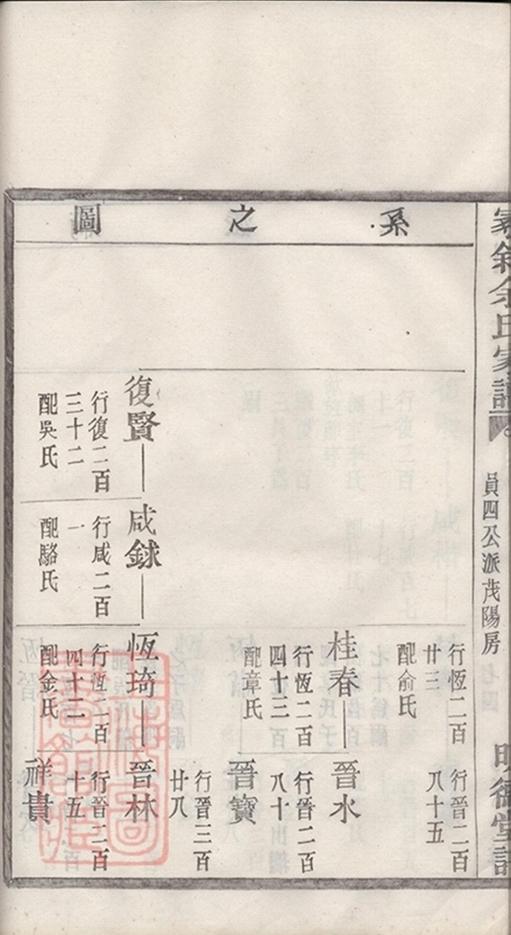 系之圖
余氏家譜
員四公派茂陽房
明德堂
行恆二百
廿三
配俞氏
行晉二百
八十五
桂春
行恆二百
四十三
配章氏
晉水
行晉二百
八十
晉寶
行晉三百
廿八
復賢
行復二百
三十二
配吳氏
咸銶
行咸二百
一
配駱氏
恆琦
行恆二百
四十二
配金氏
晉林
行晉二百
十五
祥貴